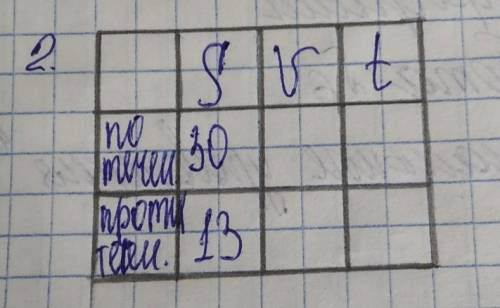 2.
S V t
по
течен. 30
против
течн. 13